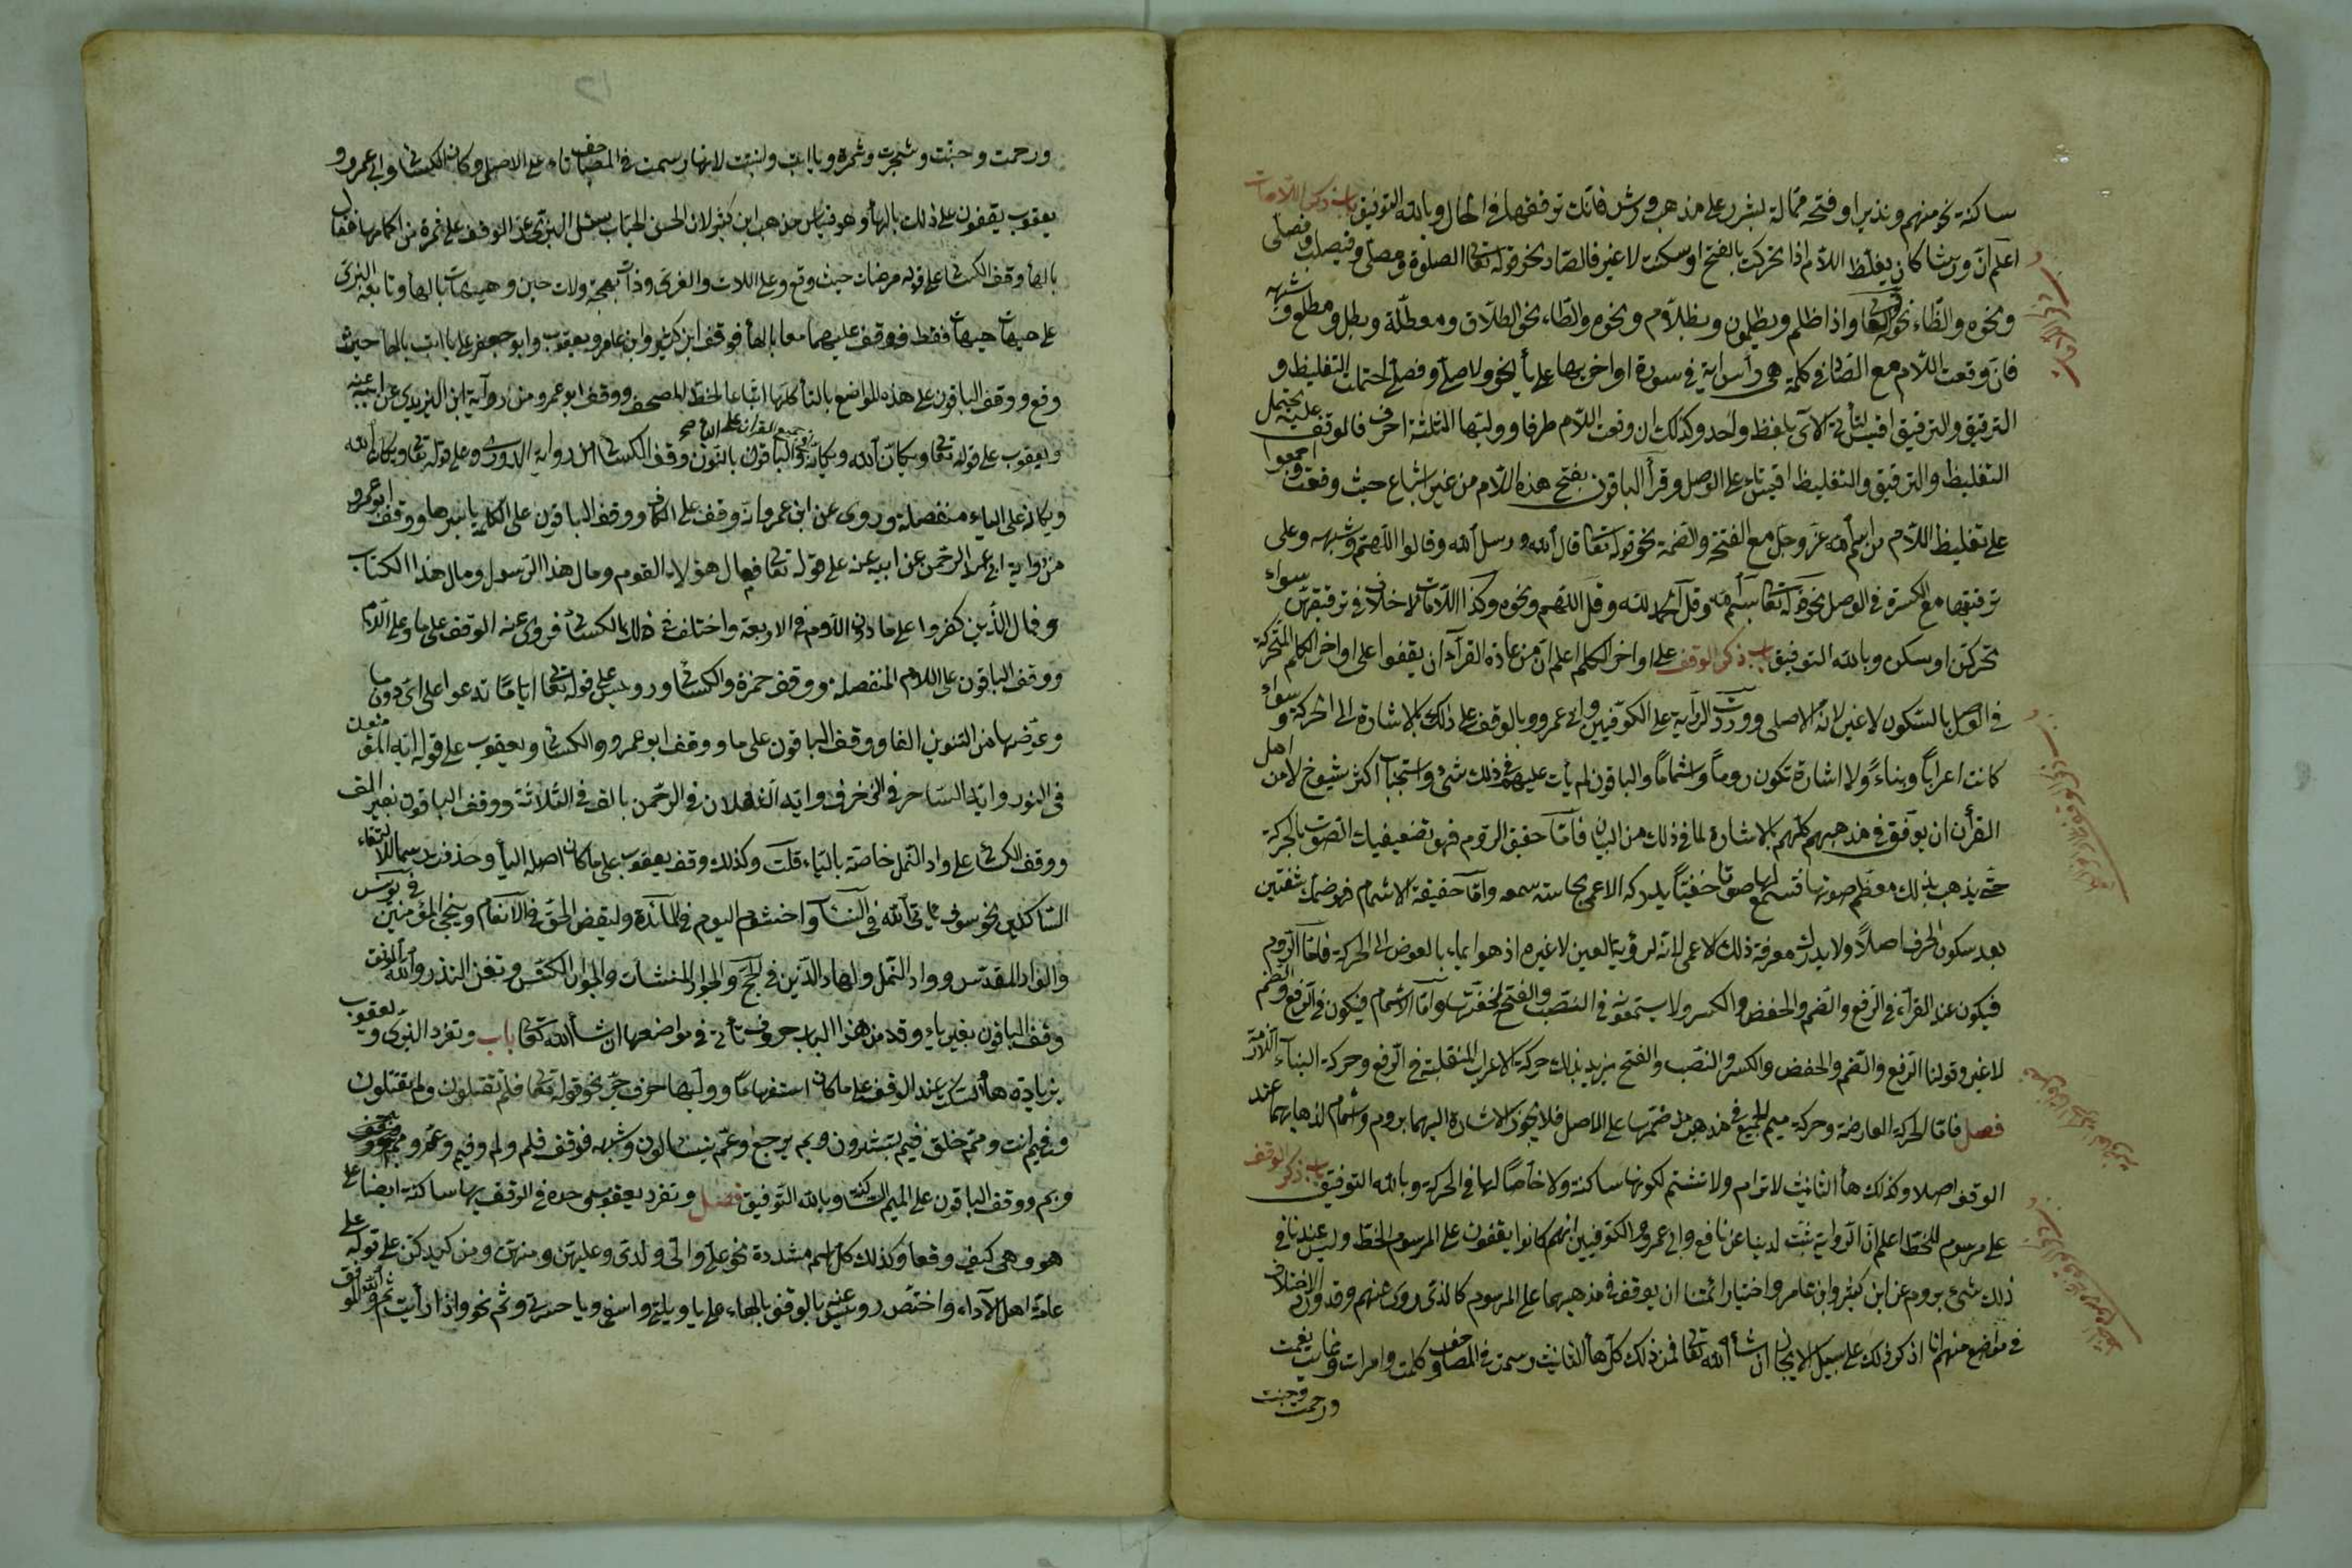 ساكنة نحو منهم ونذيرا وفتحة ممالة بشرر على مذهب ورش فانك ترققها في الحال وبالله التوفيق باب ذكر اللامات
اعلم ان ورشا كان يغلظ اللام اذا تحركت بالفتح او سكنت لا غير فالصاد نحو قوله تعا الصلوة ومصلى وفيصلب وفصلى
ونحوه والظاء نحو قوله تعا واذا ظلم ويظلمون وبظلام ونحوه والطاء نحو الطلاق ومعطلة وبطل ومطلع وشبهه
فان وقعت اللام مع الصاد في كلمة هي رأس اية في سورة اواخر ايها على يأ نحو ولا صلى وفصلى احتملت التغليظ و
الترقيق والترقيق اقيس لتأتي الآي بلفظ واحد وكذلك ان وقعت اللام طرفا ووليتها الثلثة احرف فالوقف عليه يحتمل
التغليظ والترقيق والتغليظ اقيس بناء على الوصل وقرأ الباقون بفتح هذه اللام من غير اشباع حيث وقعت واجمعوا
على تغليظ اللام من اسم الله عز وجل مع الفتحة والضمة نحو قوله تعا قال الله ورسل الله وقالوا اللهم وشبهه وعلى
ترقيقها مع الكسرة في الوصل نحو قوله تعا بسم الله وقل الحمد لله وقل اللهم ونحوه وكذا اللامات لا خلاف في ترقيقهن سواء
تحركن او سكن وبالله التوفيق باب ذكر الوقف على اواخر الكلم اعلم ان من عادة القرآء ان يقفوا على اواخر الكلم المتحركة
في الوصل بالسكون لا غير لانه الاصلى ووردت الرواية على الكوفيين وابى عمرو وبالوقف على ذلك بالاشارة الى الحركة سواء
كانت اعرابا وبناء ولا اشارة تكون روما واشماما والباقون لم يأت عليهم في ذلك شئ واستحباب اكثر شيوخ لا من اهل
القرأن ان يوقف في مذهبهم كلهم بالاشارة لما في ذلك من البيان فاما حقيق الروم فهو تضعيفيات الصوت بالحركة
حتى يذهب بذلك معظم صوتها فتسمع لها صوتا خفيا يدركه الاعمى بحاسته سمعه واما حقيقة الاشمام فهو ضمك شفتين
بعد سكون الحرف اصلا ولا يدرك معرفة ذلك الاعمى لانه لرؤية العين لا غيره اذ هو ايماء بالعوض الى الحركة فاما الروم
فيكون عند القرآء في الرفع والضم والخفض والكسر ولا يستعمونه في النصب والفتح لخفتها واما الاشمام فيكون في الرفع والضم
لا غير وقولنا الرفع والضم والخفض والكسر والنصب والفتح نريد بذلك حركة الاعراب المنتقلة في الرفع وحركة البناء اللازمة
فصل فاما الحركة العارضة وحركة ميم الجميع في مذهب من ضمها على الاصل فلا يجوز الاشارة اليهما بروم واشمام لذهابهما عند
الوقف اصلا وكذلك هأ التانيث لا ترام ولا تشم لكونها ساكنة ولا خاصا لها في الحركة وبالله التوفيق باب ذكر الوقف
على مرسوم للخط اعلم ان الرواية ثبت لدينا عن نافع وابى عمرو والكوفيين انهم كانوا يقفون على المرسوم الخط وليس عندنا في
ذلك شئ بروم عن ابن كثير وابن عامر واختيار ائمتنا ان يوقف في مذهبهما على المرسوم كالذي روى عنهم وقد ورد الاختلاف
في مواضع منها انا اذكر ذلك على سبيل الايجاز ان شأ الله تعا فمن ذلك كل هأ التانيث رسمت في المصاحف كلمت وامرات وغابت بقيت
ورحمت وجنت
ورحمت وجنت وشجرت وثمرة ويا ابت ولنبت لانها رسمت في المصاحف تاء على الاصل وكان الكسائى وابى عمرو و
يعقوب يقفون على ذلك بالهأ وهو قياس مذهب ابن كثير لان الحسن الحباب سئل البزى عن الوقف على ثمرة من اكمامها فقال
بالهأ وقف الكسائى على قوله مرضات حيث وقع وعلى اللات والعزى وذات بهجة ولات حين وهيهات بالهأ وتابعه البزى
على هيهات هيهات فقط فوقف عليهما معا بالهأ فوقف ابن كثير وابن عامر ويعقوب وابو جعفر على يا ابت بالهأ حيث
وقع ووقف الباقون على هذه المواضع بالتأ كلها اتباعا لخط المصحف ووقف ابو عمرو من رواية ابن اليزيدى عن ابيه عنه
ويعقوب على قوله تعا وكاين الله وكاين في جميع القرآن على الياء والباقون بالنون وقف الكسائى من رواية الدورى على قوله تعا ويكان الله
ويكانه على الياء منفصلة وروى عن ابى عمرو انه وقف على الكاف ووقف الباقون على الكلمة باسرها ووقف ابو عمرو
من رواية ابى عبد الرحمن عن ابيه عنه على قوله تعا فمال هؤلاء القوم ومال هذا الرسول ومال هذا الكتاب
وفمال الذين كفروا على ما دون اللام في الاربعة واختلف في ذلك الكسائى فروى عنه الوقف على ما وعلى اللام
ووقف الباقون على اللام المنفصلة ووقف حمزة والكسائى ورويس على قوله تعا ايا ما تدعوا على اى دون ما
وعوضها من التنوين الفا ووقف الباقون على ما ووقف ابو عمرو والكسائى ويعقوب على قوله ايه المؤمنون
في النور وايه الساحر في الزخرف وايه الثقلان في الرحمن بالف في الثلاثة ووقف الباقون بغير الف
ووقف الكسائى على واد النمل خاصة بالياء قلت وكذلك وقف يعقوب على ما كان اصله اليأ وحذفت رسما لالتقاء
الساكنين نحو سوف يأتى الله في النسآ واخشون اليوم في المائدة وليقض الحق في الانعام وينجى المؤمنين في يونس
والواد المقدس وواد النمل ولهاد الذين في الحج والجوار المنشأت والجوار الكنس وتغن النذر والله الموفق
وقف الباقون بغير ياء وقد من هذا الباب حروف تأتى في مواضعها ان شأ الله تعا باب وتفرد البزى ويعقوب
بزيادة هأ السكت عند الوقف على ما كان استفهاما ووليها حرف جر نحو قوله تعا فلم تقتلون ولم تقتلون
وفيم انت ومم خلق فبم تبشرون وبم يرجع وعم يتسألون وشبهه فوقف فلم ولم وفيم وعم ومم
وبم ووقف الباقون على الميم الساكنة وبالله التوفيق فصل وتفرد يعقوب وحده في الوقف بها ساكنة ايضا على
هو وهى كيف وقعا وكذلك كل اسم مشددة نحو على والى ولدى وعليهن ومنهن ومن كيدكن على قوله على
عامة اهل الآداء واختص رويس عنه بالوقف بالهاء على يا ويلتى واسفى ويا حسرتى وثم نحو واذا رأيت ثم والله الموفق